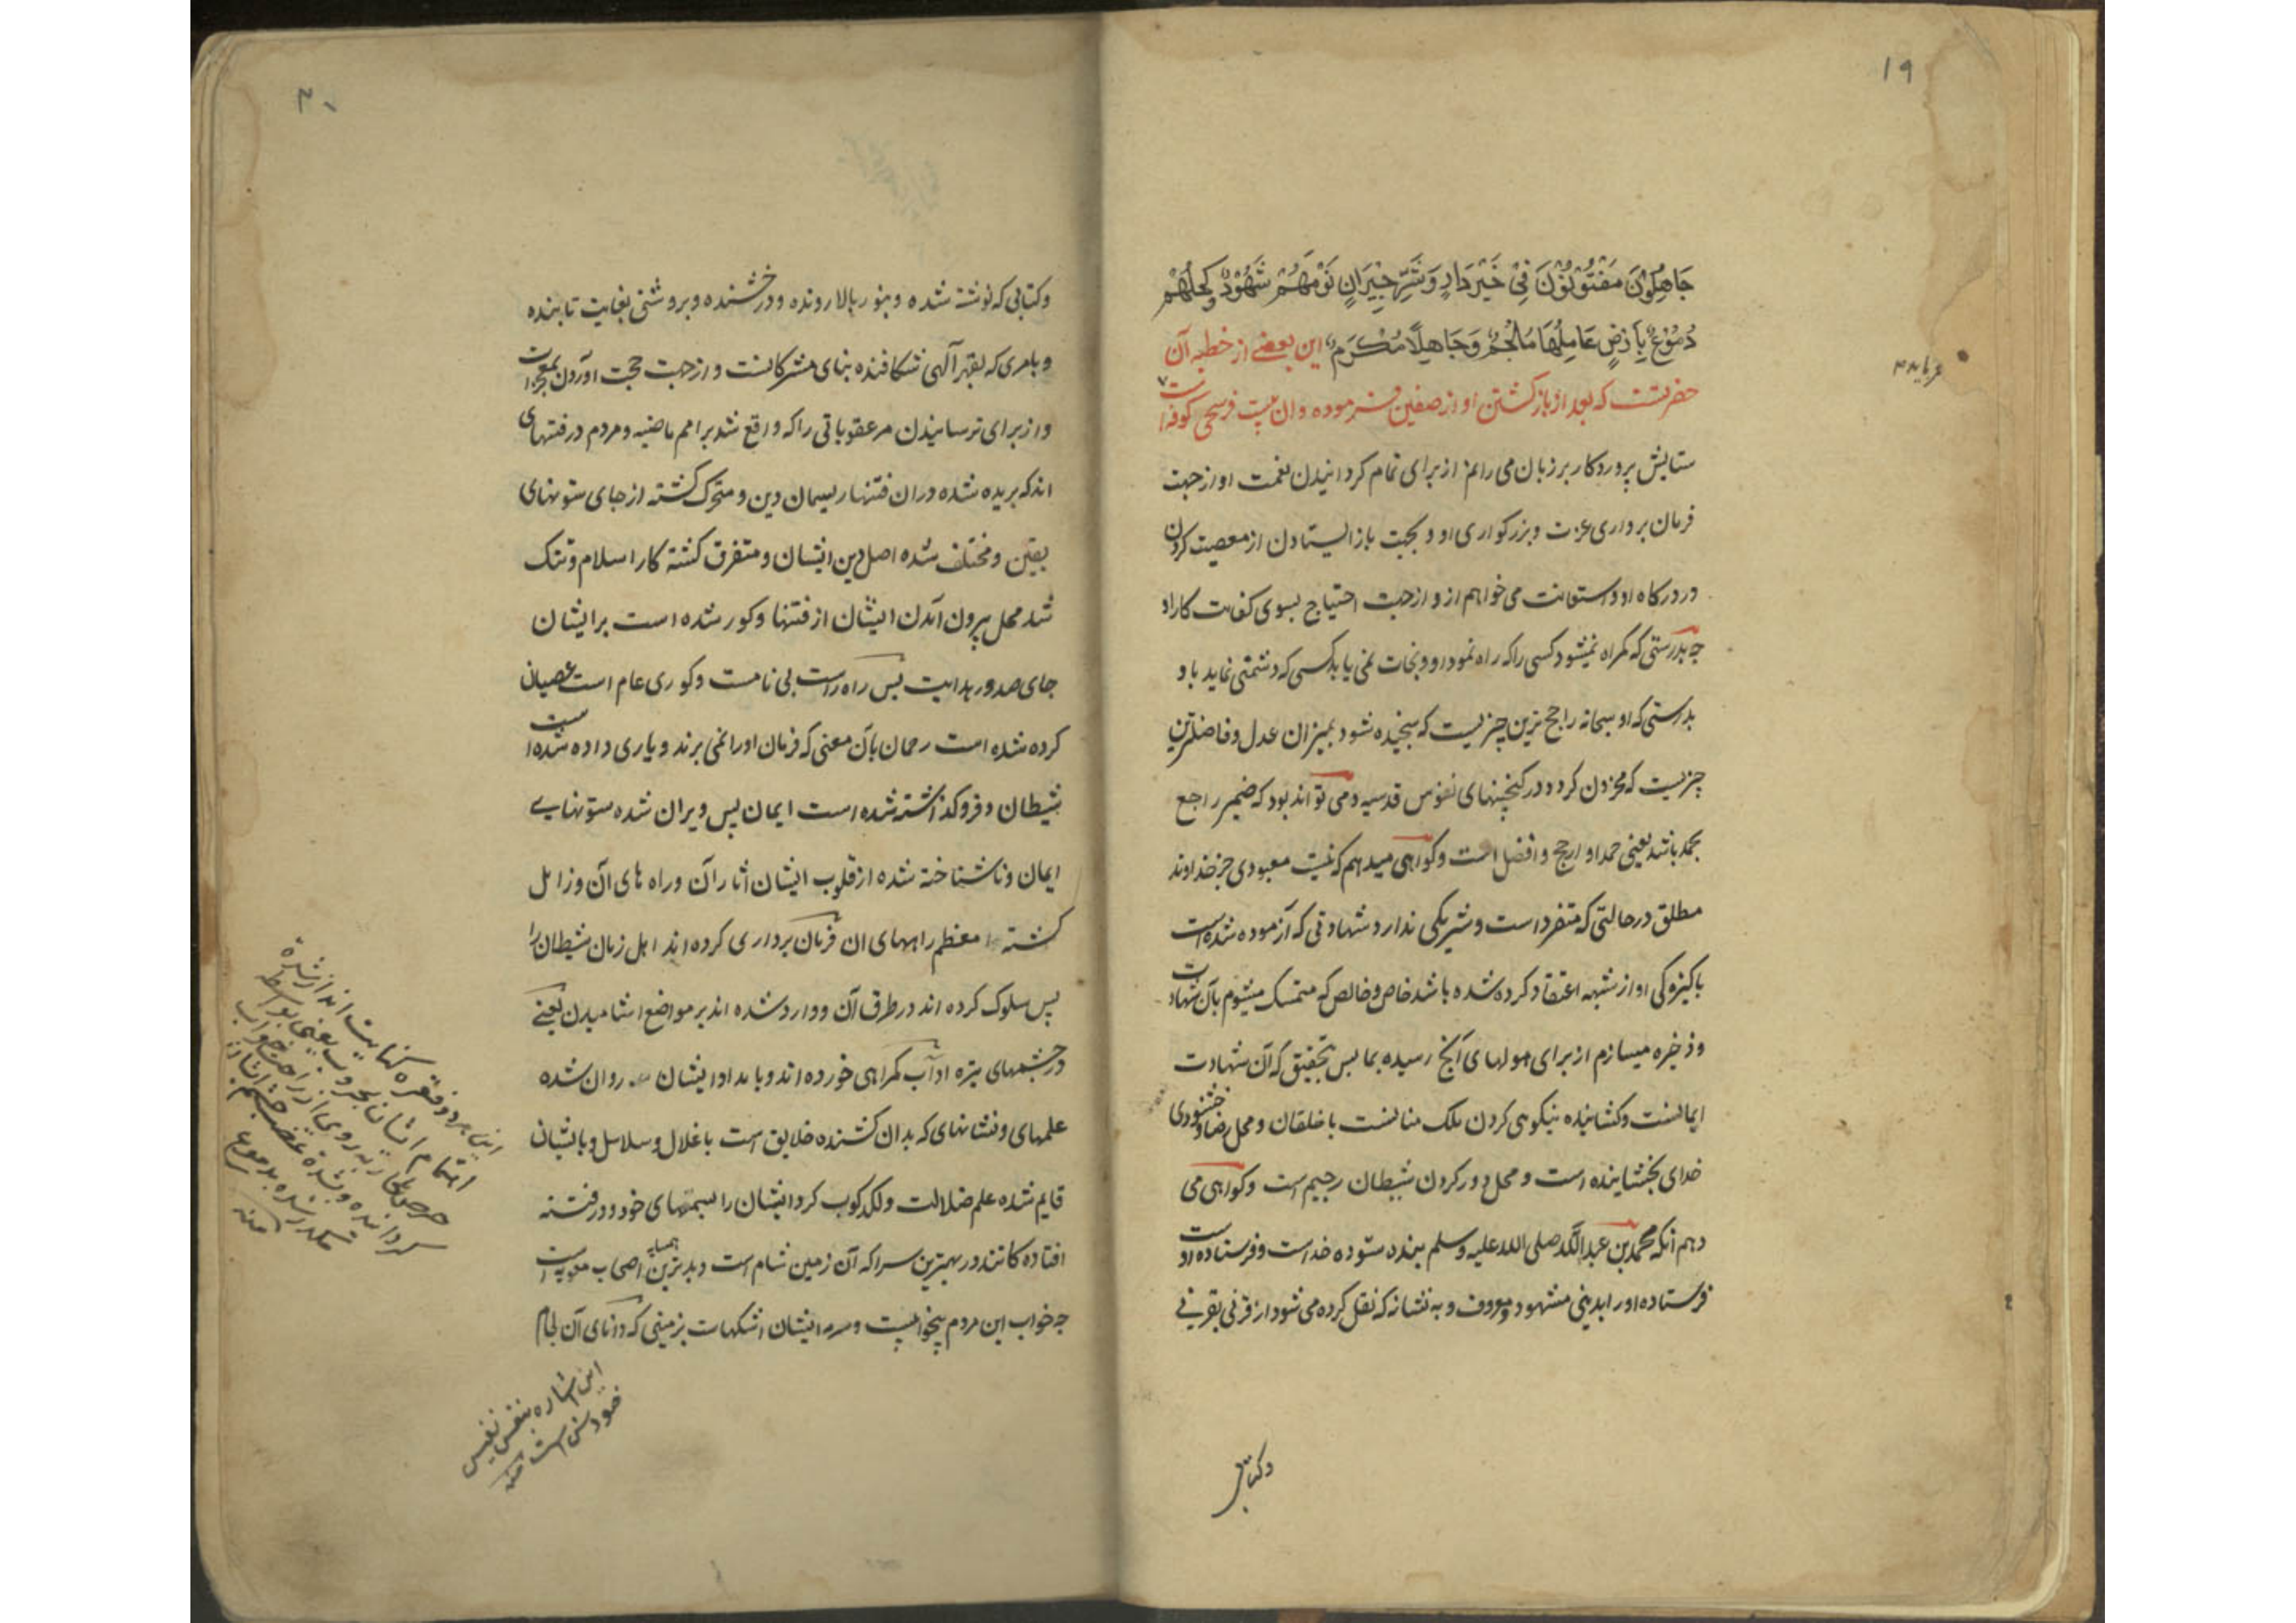 ۱۹
جَاهِلُونَ مَفْتُونُونَ فِي خَيْرِ دَارٍ وَشَرِّ جِيرَانٍ نَوْمُهُمْ سُهُودٌ وَكُحْلُهُمْ
دُمُوعٌ بِأَرْضٍ عَالِمُهَا مُلْجَمٌ وَجَاهِلُهَا مُكْرَمٌ این بعضی از خطبه آن
حضرتست که بعد از باز کشتن او از صفین فرموده وان بیست فرسخی کوفه است
ستایش پروردکار بر زبان می رانم از برای تمام کردانیدن نعمت او از جهت
فرمان برداری عزت و بزرکواری او و بجهت باز ایستادن از معصیت کردن
در درکاه او و استعانت می خواهم ازو از جهت احتیاج بسوی کفایت کار او
چه بدرستی که کمراه نمیشود کسی را که راه نمود او و نجات نمی یابد کسی که دشمنی نماید با و
بدرستی که او سبحانه راجح ترین چیزیست که سنجیده شود بمیزان عدل و فاضلترین
چیزیست که مخزون کردد در کنجینهای نفوس قدسیه و می تواند بود که ضمیر راجع
بحمد باشد یعنی حمد او ارجح و افضل است و کواهی میدهم که نیست معبودی جز خداوند
مطلق در حالتی که متفرد است و شریکی ندارد شهادتی که آزموده شده است
پاکیزکی او از شبهه اعتقاد کرده شده باشد خاص و خالص که متمسک میشوم بآن شهادت
و ذخیره میسازم از برای هولهای آنچ رسیده بما پس بتحقیق که آن شهادت
ایمانست و کشاینده نیکویی کردن ملک منانست با خلقان و محل رضا و خشنودی
خدای بخشاینده است و محل دور کردن شیطان رجیم است و کواهی می
دهم آنکه محمد بن عبدالله صلی الله علیه وسلم بنده ستوده خداست و فرستاده او است
فرستاده او را بدینی مشهود و معروف و به نشانه که نقل کرده می شود از قرنی بقرنی
وکتابی
۲۰
وکتابی که نوشته شده و بنور بالا رونده و درخشنده و بروشنی بغایت تابنده
و بامری که بقهر آلهی شکافنده بنای مشرکانست و از جهت حجت اوردن بمعجزات
و از برای ترسانیدن مر عقوباتی را که واقع شد بر امم ماضیه و مردم در فتنهای
اند که بریده شده دران فتنها ریسمان دین و متحرک کشته از جای ستونهای
یقین و مختلف شده اصل دین ایشان و متفرق کشته کار اسلام و تنک
شد محل بیرون آمدن ایشان از فتنها و کور شده است برایشان
جای صدور هدایت پس راه راست بی نامست و کوری عام است عصیان
کرده شده است رحمان بآن معنی که فرمان او را نمی برند و یاری داده شده است
شیطان و فروکذاشته شده است ایمان پس ویران شده ستونهای
ایمان و ناشناخته شده از قلوب ایشان اثار آن و راه های آن و زایل
کشته معظم راههای ان فرمان برداری کرده اند اهل زمان شیطان را
پس سلوک کرده اند در طرق آن و وارد شده اند بر مواضع اشامیدن یعنی
در چشمهای تیره او آب کمراهی خورده اند و بامداد ایشان روان شده
علمهای و نشانهای که بدان کشنده خلایق است باغلال و سلاسل و بایشان
قایم شده علم ضلالت و لکد کوب کرد ایشان را بسمهای خود و در فتنه
افتاده کانند در بهترین سرا که آن زمین شام است و بدترین همسایه اصحاب معویه است
چه خواب این مردم بیخوابیست و سرمه ایشان اشکهاست بزمینی که دانای آن لجام
این هر دو فقره کنایت اند از شدة
اهتمام ایشان بحروب یعنی بواسطه
کردانیده و شدة غضب چشم ایشان
مکدر شده بدموع
منه
این اشاره بنفس نفیس
خودش است منه